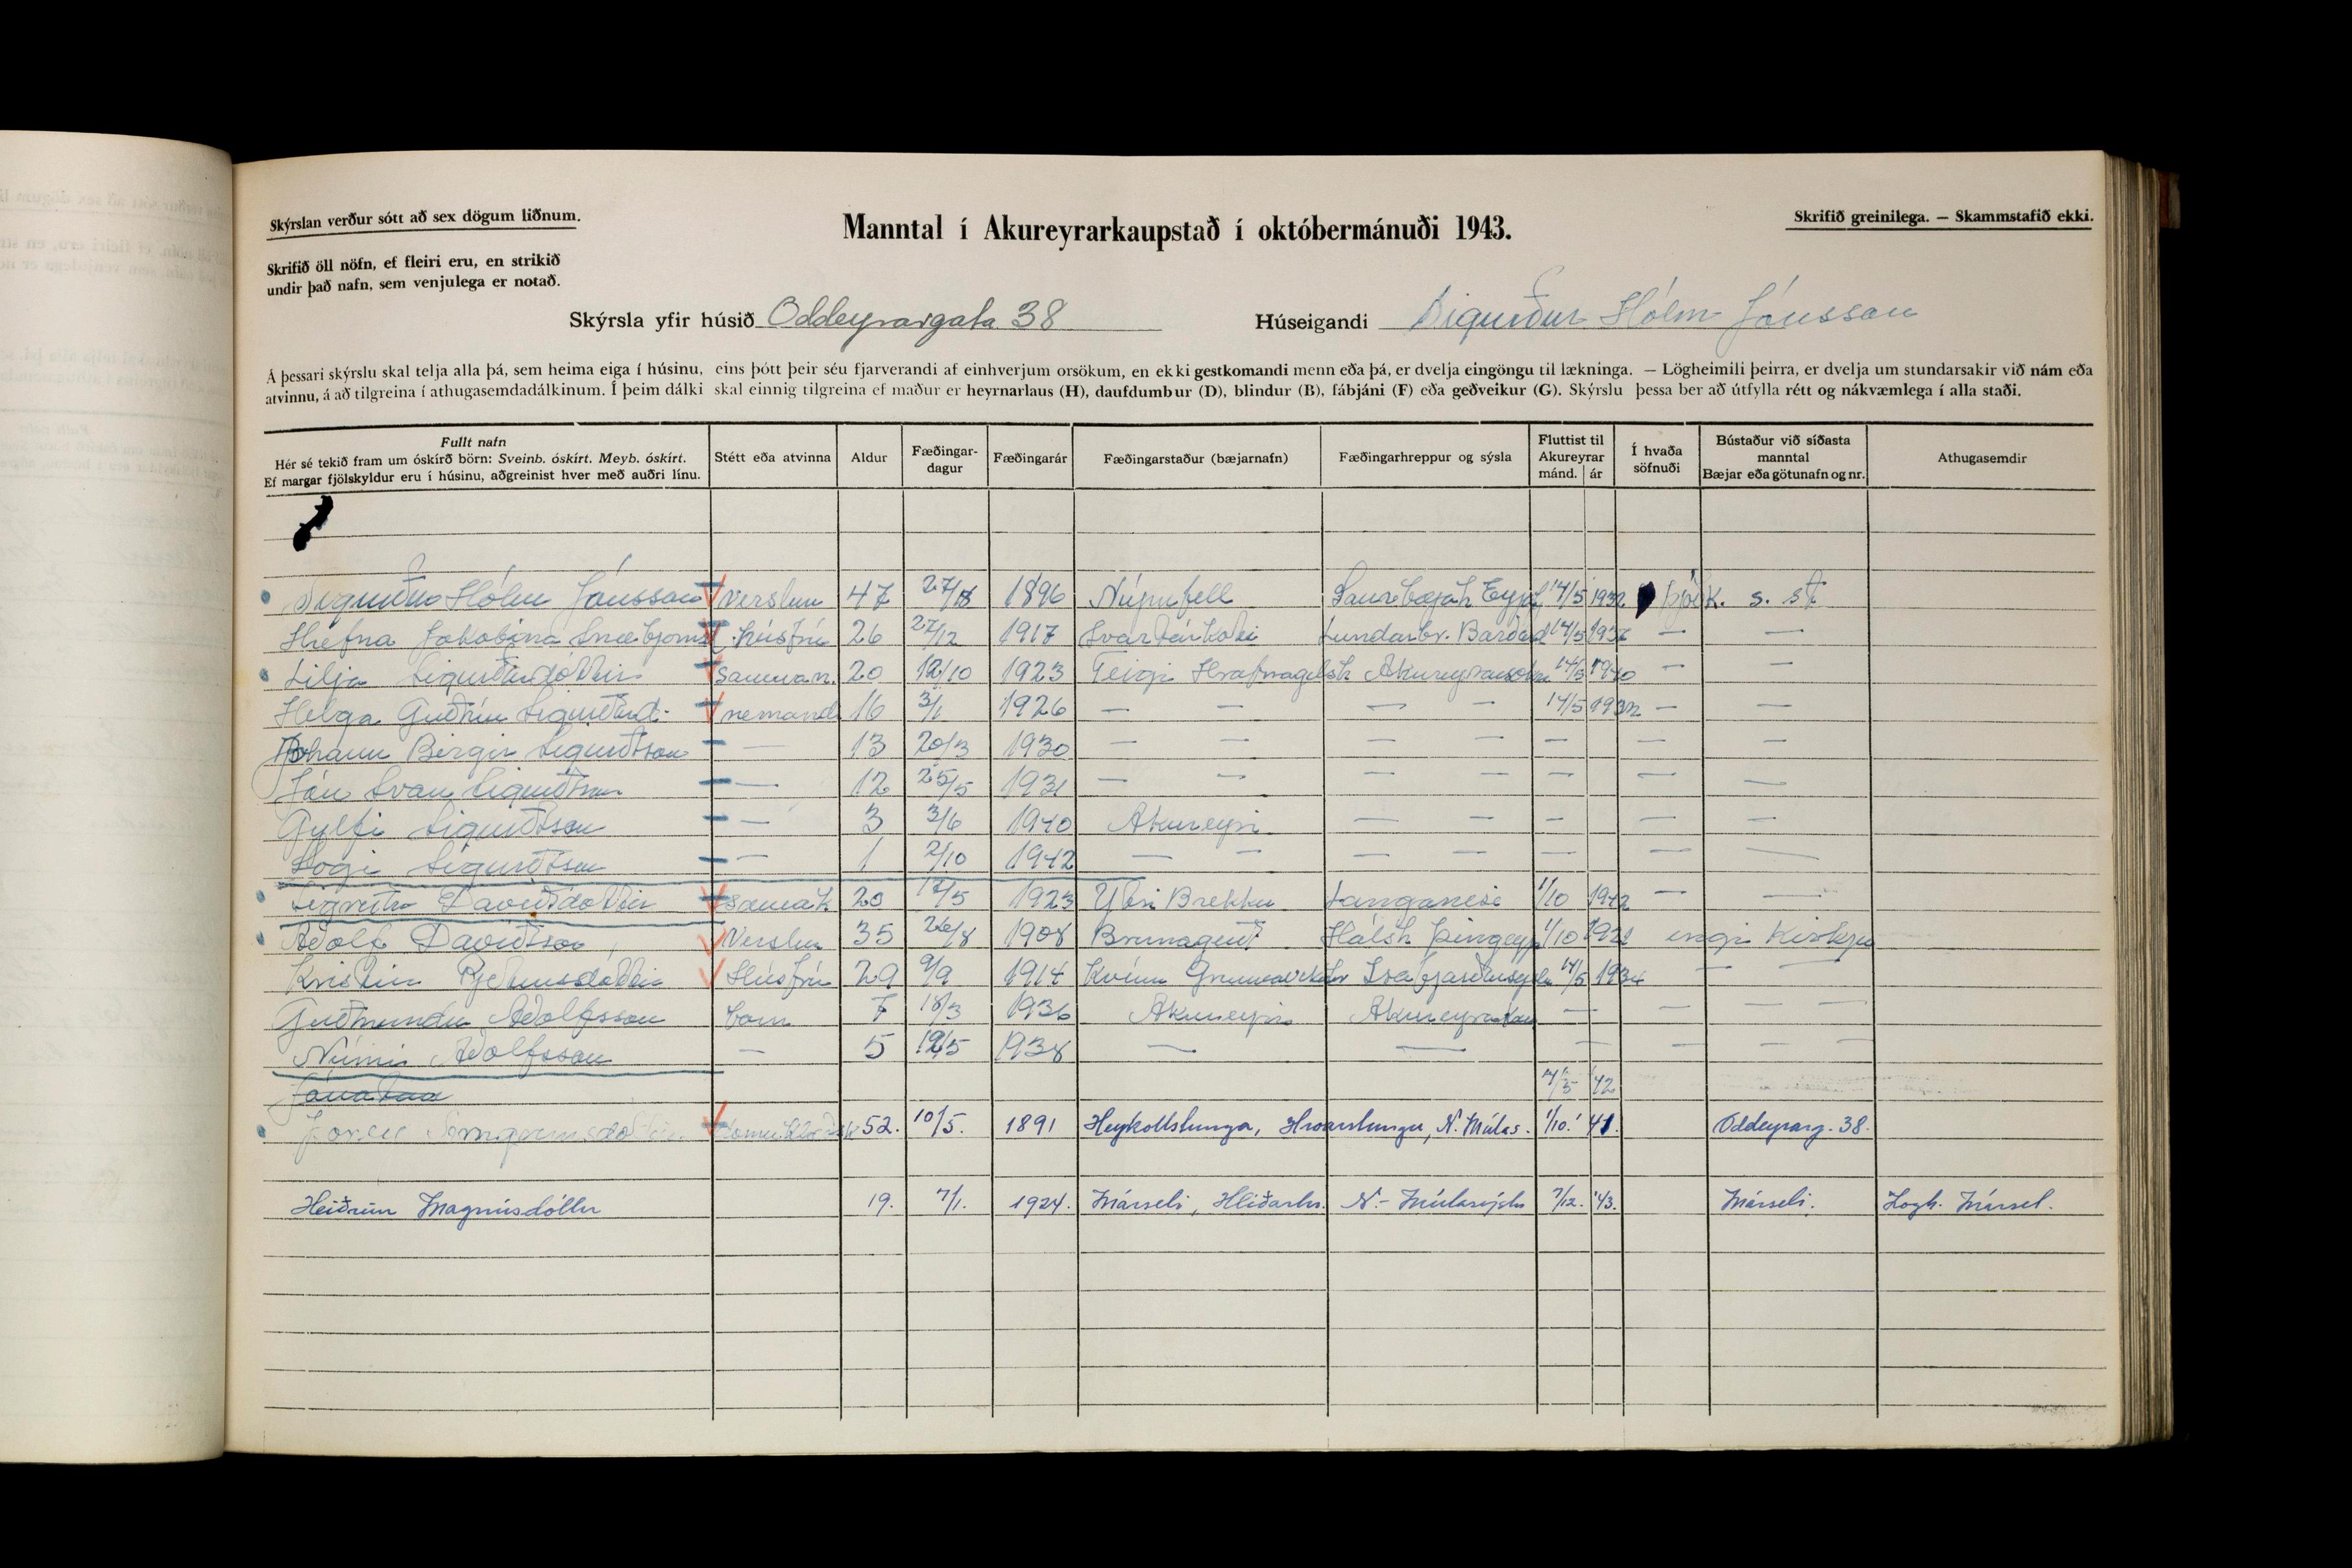 Skýrslan verður sótt að sex dögum liðnum.
Manntal í Akureyrarkaupstað í októbermánuði 1943.
Skrifið greinilega. — Skammstafið ekki.
Skrifið öll nöfn, ef fleiri eru, en strikið
undir það nafn, sem venjulega er notað.
Skýrsla yfir húsið Oddeyrargata 38 Húseigandi Sigurður Hólm Jónsson
Á þessari skýrslu skal telja alla þá, sem heima eiga í húsinu, eins þótt þeir séu fjarverandi af einhverjum orsökum, en ekki gestkomandi menn eða þá, er dvelja eingöngu til lækninga. — Lögheimili þeirra, er dvelja um stundarsakir við nám eða
atvinnu, á að tilgreina í athugasemdadálkinum. Í þeim dálki skal einnig tilgreina ef maður er heyrnarlaus (H), daufdumbur (D), blindur (B), fábjáni (F) eða geðveikur (G). Skýrslu þessa ber að útfylla rétt og nákvæmlega í alla staði.
Fullt nafn
Hér sé tekið fram um óskírð börn: Sveinb. óskírt. Meyb. óskírt.
Ef margar fjölskyldur eru í húsinu, aðgreinist hver með auðri línu.
Stétt eða atvinna
Aldur
Fæðingar-
dagur
Fæðingarár
Fæðingarstaður (bæjarnafn)
Fæðingarhreppur og sýsla
Fluttist til
Akureyrar
mánd. ár
Í hvaða
söfnuði
Bústaður við síðasta
manntal
Bæjar eða götunafn og nr.
Athugasemdir
Sigurður Hólm Jónsson Verslun 47 1896 Núpufell 14/5 1932 Þjóðk. s. st
Hrefna Jakobína Snæbjörnsd húsfrú 26 27/12 1917 Svartárkoti Lundarbr. Bárðad 14/5
Lilja Sigurðardóttir 20 12/10 1923 Teigi Hrafnagilsh 1940 — —
Helga Guðrún Sigurðard. nemandi 16 3/1 1926 — — — — 14/5 — —
Jóhann Birgir Sigurðsson — 13 20/3 1930 — — — — — — —
Jón Svan Sigurðsson — 12 25/5 1931 — — — — — — —
Gylfi Sigurðsson — 3 3/6 1940 Akureyri — — — — —
Logi Sigurðsson — 1 2/10 1942 — — — — — — —
Davíðsdóttir 20 17/5 1923 Ytri Brekku Langanesi 1/10 1942 — —
Adolf Davíðsson Verslun 35 26/8 1908 Hálsh Þingeyj 1/10 engri kirkju
Kristín Húsfrú 29 9/9 1914 14/5 1934 — —
Guðmundur Adolfsson barn 7 18/3 1936 Akureyri — — — —
Númi Adolfsson — 5 1938 — — — — — —
14/5 42
52. 10/5. 1891 Heykollstunga, Hroarstungu, N. Múlas. 1/10. 41. Oddeyrarg. 38.
Heiðrún Magnúsdóttir 19. 7/1. 1924. Másseli, Hlíðarhr. N.-Múlasýslu 7/12. '43. Másseli. Lögh. Mássel.